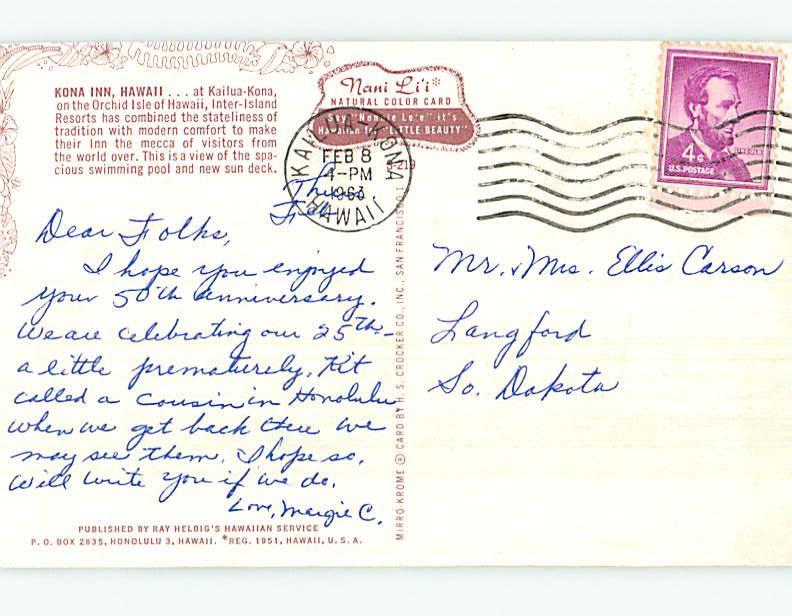 KONA INN, HAWAII . . . at Kailua-Kona,
on the Orchid Isle of Hawaii, Inter-Island
Resorts has combined the stateliness of
tradition with modern comfort to make
their Inn the mecca of visitors from
the world over. This is a view of the spa-
cious swimming pool and new sun deck.
Nani Li'i*
NATURAL COLOR CARD
Say "Nonnie Le'e" it's
Hawaiian for "LITTLE BEAUTY"
KAILUA KONA
FEB 8
4-PM
1963
HAWAII
4¢
LINCOLN
U.S. POSTAGE
Dear Folks,
I hope you enjoyed
your 50th anniversary.
We are celebrating our 25th-
a little prematurely. Kit
called a cousin in Honolulu
when we get back there we
may see them. I hope so.
Will write you if we do.
Love, Margie C.
Mr. & Mrs. Ellis Carson
Langford
So. Dakota
MIRRO-KROME ® CARD BY H. S. CROCKER CO., INC., SAN FRANCISCO 1
PUBLISHED BY RAY HELBIG'S HAWAIIAN SERVICE
P. O. BOX 2835, HONOLULU 3, HAWAII. *REG. 1951, HAWAII, U. S. A.